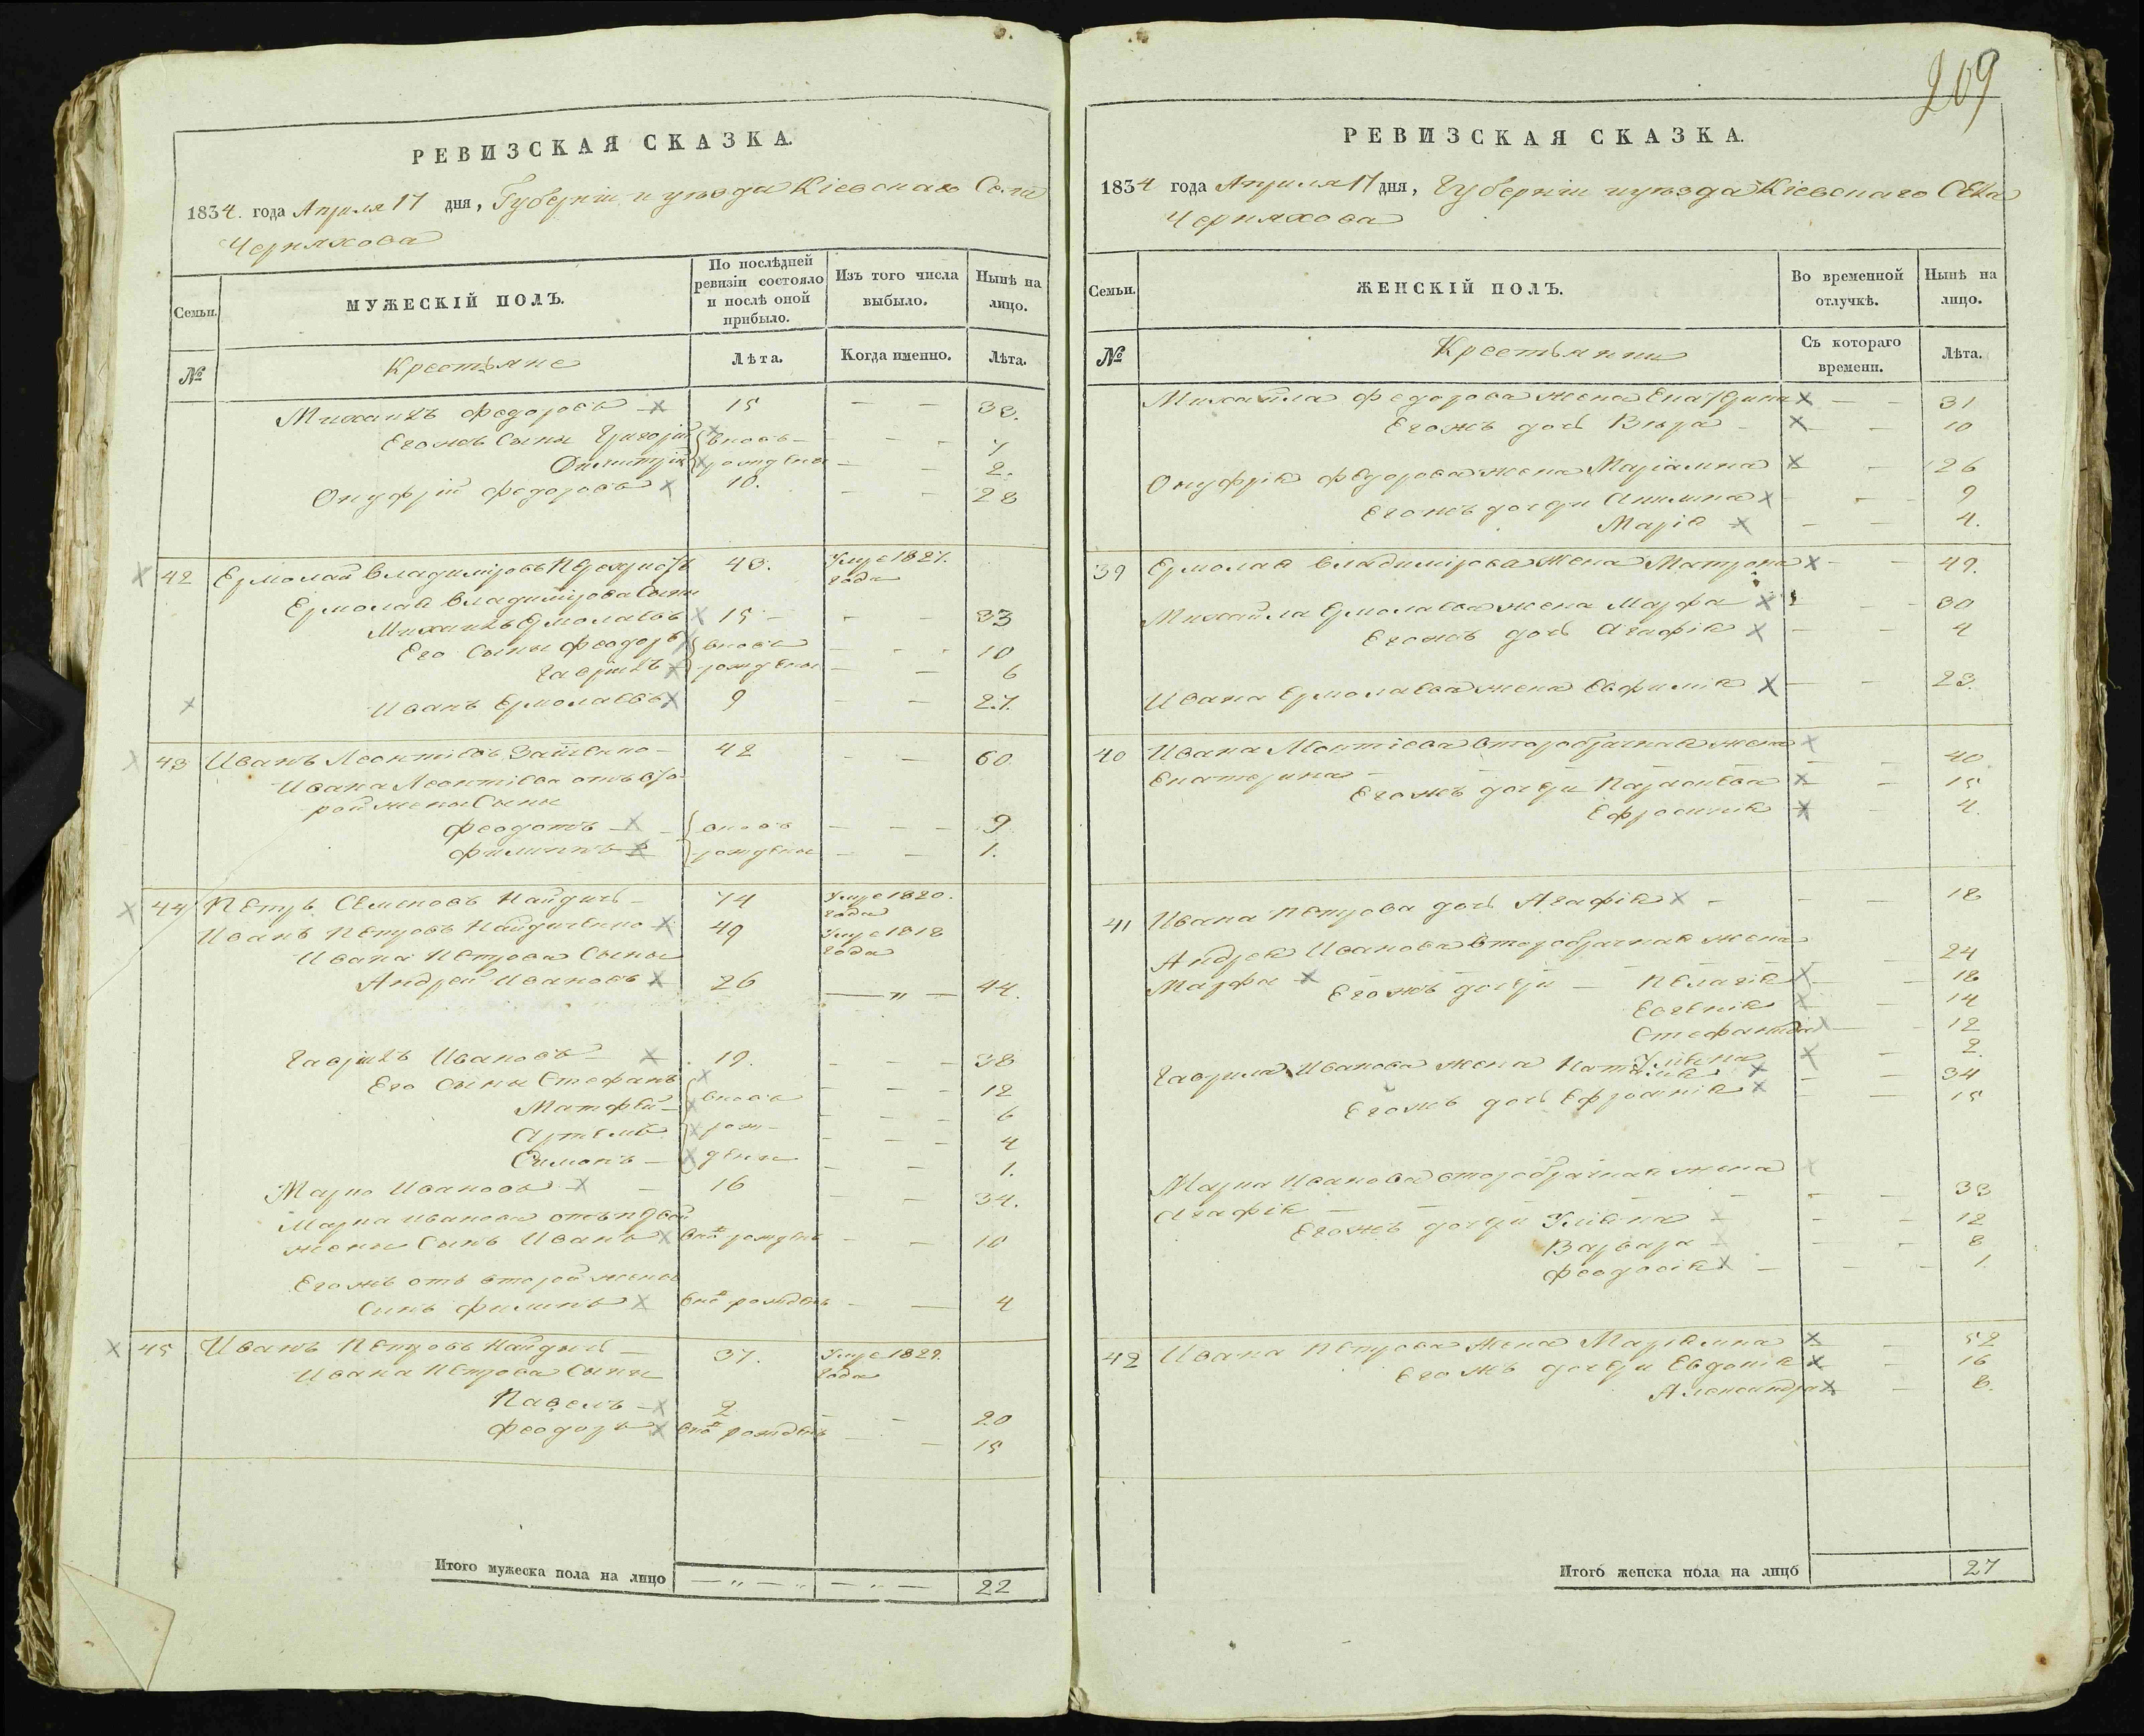 РЕВИЗСКАЯ СКАЗКА.
1834. года Апреля 17 дня, Губернiи и уезда Кiевскаго Села
Черняхова
Семьи.
МУЖЕСКIЙ ПОЛЪ.
По послѣдней ревизiи состояло и послѣ оной прибыло.
Изъ того числа выбыло.
Нынѣ на лицо.
№
Крестьяне
Лѣта.
Когда именно.
Лѣта.
Михаилъ Федоровъ 15 — — 33.
Его жъ Сыны Григорiй вновь — — 7
Димитрiй рождены — — 2.
Онуфрiй Федоровъ 10. — — 28
42 Ермолай Владимiровъ 43. Умре 1827. года
Ермолая Владимiрова Сыны
Михаилъ Ермолаевъ 15 — — 33
Его Сыны Феодоръ вновь — — 10
Гаврiилъ рождены — — 6
Иванъ Ермолаевъ 9 — — 27.
43 Иванъ Леонтiевъ 42 — — 60
Ивана Леонтiева отъ вто-
рой жены Сыны
Феодотъ вновь — — 9.
Филиппъ рождены — — 1.
44 Петръ Семеновъ Найдичь 74 Умре 1820. года
Иванъ Петровъ Найдиченко 49 Умре 1818 года
Ивана Петрова Сыны
Андрей Ивановъ 26 — „ — 44.
Гаврiилъ Ивановъ 19. — — 38
Его Сыны Стефанъ — — 12
Матфей вновь — — 6
Артемъ рож- — — 4
Симонъ дены — — 1.
Марко Ивановъ 16 — — 34.
Марка Иванова отъ первой
жены Сынъ Иванъ внѣ рожденъ — — 10
Его жъ отъ второй жены
Сынъ Филипъ рожденъ — — 4
45 Иванъ Петровъ Найдичь 37. Умре 1829. года
Ивана Петрова Сыны
Павелъ 2 — — 20
Феодоръ рожденъ — — 15
Итого мужеска пола на лицо — „ — „ — „ — 22
209
РЕВИЗСКАЯ СКАЗКА.
1834 года Апреля 17 дня, Губернiи и уезда Кiевскаго Села
Черняхова
Семьи.
ЖЕНСКIЙ ПОЛЪ.
Во временной отлучкѣ.
Нынѣ на лицо.
№
Крестьянки
Съ котораго времени.
Лѣта.
Михайла Федорова жена Екатерина — — 31
Его жъ дочь Вѣра — — 10
Онуфрiя Федорова жена Марiамна — 26
Его жъ дочери — — 9
Марiя — — 4.
39 Ермолая Владимiрова Жена Матрона — — 49.
Михайла Ермолаева жена Марфа — — 30
Его жъ дочь Агафiя — — 4
Ивана Ермолаева жена Евфимiя — — 23.
40 Ивана Леонтiева второбрачная жена
Екатерина — — 40
Его жъ дочери — — 15
Ефросинiя 4.
41 Ивана Петрова дочь Агафiя — — 18
Андрея Иванова второбрачная жена
Марфа — — 24
Его жъ дочери — Пелагiя — 18
Евгенiя — 14
Стефанида — — 12
Улiяна — 2.
Гаврила Иванова жена Наталiя — — 34
Его жъ дочь Ефросинiя — — 15
Марка Иванова второбрачная жена
Агафiя — — 33
Его жъ дочери Улiяна — — 12
Варвара — — 8
Феодосiя — — 1
42 Ивана Петрова Жена Марiамна — — 52
Его жъ дочери Евдокiя — 16
Александра — 8.
Итого женска пола на лицо 27